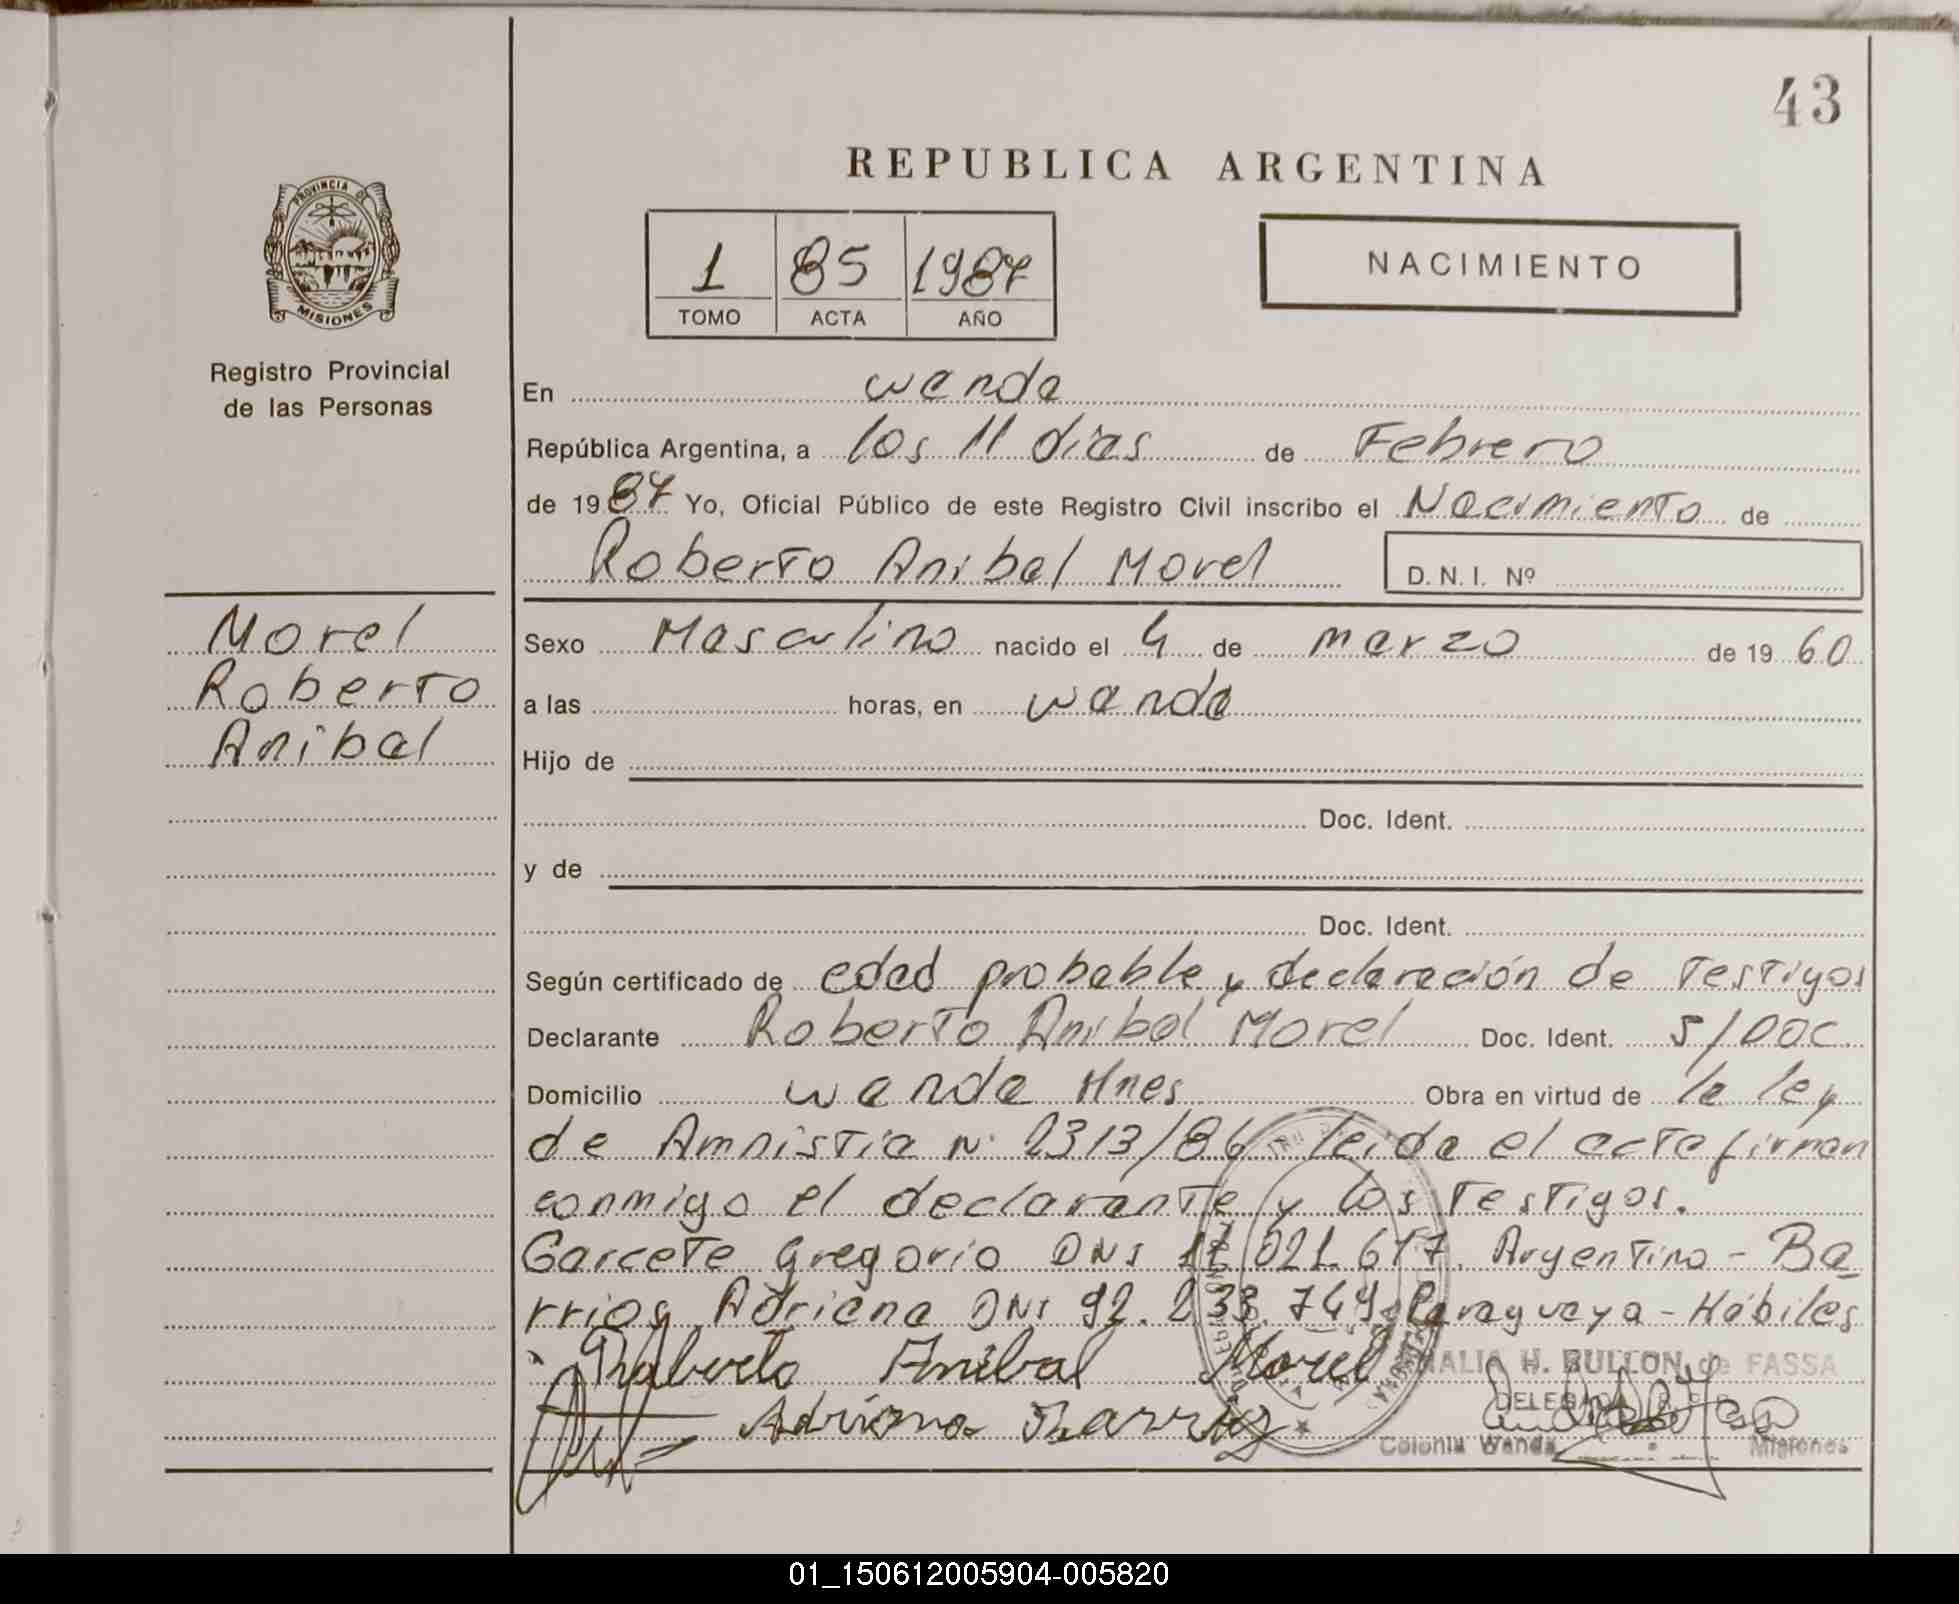 43
REPUBLICA ARGENTINA
PROVINCIA DE
MISIONES
Registro Provincial
de las Personas
1 85 1987
TOMO ACTA AÑO
NACIMIENTO
En wanda
República Argentina, a los 11 días de Febrero
de 1987 Yo, Oficial Público de este Registro Civil inscribo el Nacimiento de
Roberto Anibal Morel D.N.I. Nº
Morel
Roberto
Anibal
Sexo Masculino nacido el 4 de marzo de 1960
a las horas, en wanda
Hijo de
Doc. Ident.
y de
Doc. Ident.
Según certificado de edad probable y declaración de Testigos
Declarante Roberto Anibal Morel Doc. Ident. S/DOC
Domicilio wanda Mnes Obra en virtud de la ley
de Amnistia N° 2313/86 leida el acta firman
conmigo el declarante y los Testigos.
Garcete Gregorio DNI 17.021.617. Argentino - Ba
rrios Adriana DNI 92.233.749 Paraguaya - Hábiles
Roberto Anibal Morel
H. BULLON de FASSA
DELEGADA
Adriana Barrios
Colonia Wanda Misiones
01_150612005904-005820